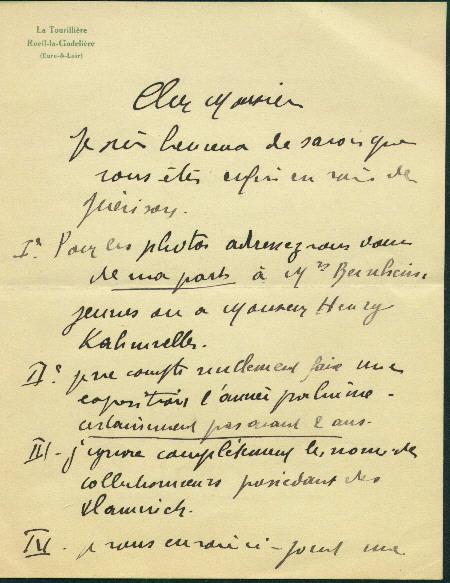 La Tourillière
Rueil-la-Gadelière
(Eure-&-Loir)
Cher Monsieur
Je suis heureux de savoir que
vous êtes enfin en voie de
guérison.
I°. Pour les photos adressez vous donc
de ma part à Mrs Bernheim
jeunes ou a Monsieur Henry
Kahnweiller.
II° je ne compte nullement faire une
exposition l'année prochaine -
certainement pas avant 2 ans.
III - j'ignore complètement le nom des
collectionneurs possédant des
Vlaminck.
IV. je vous envoie ci-joint une